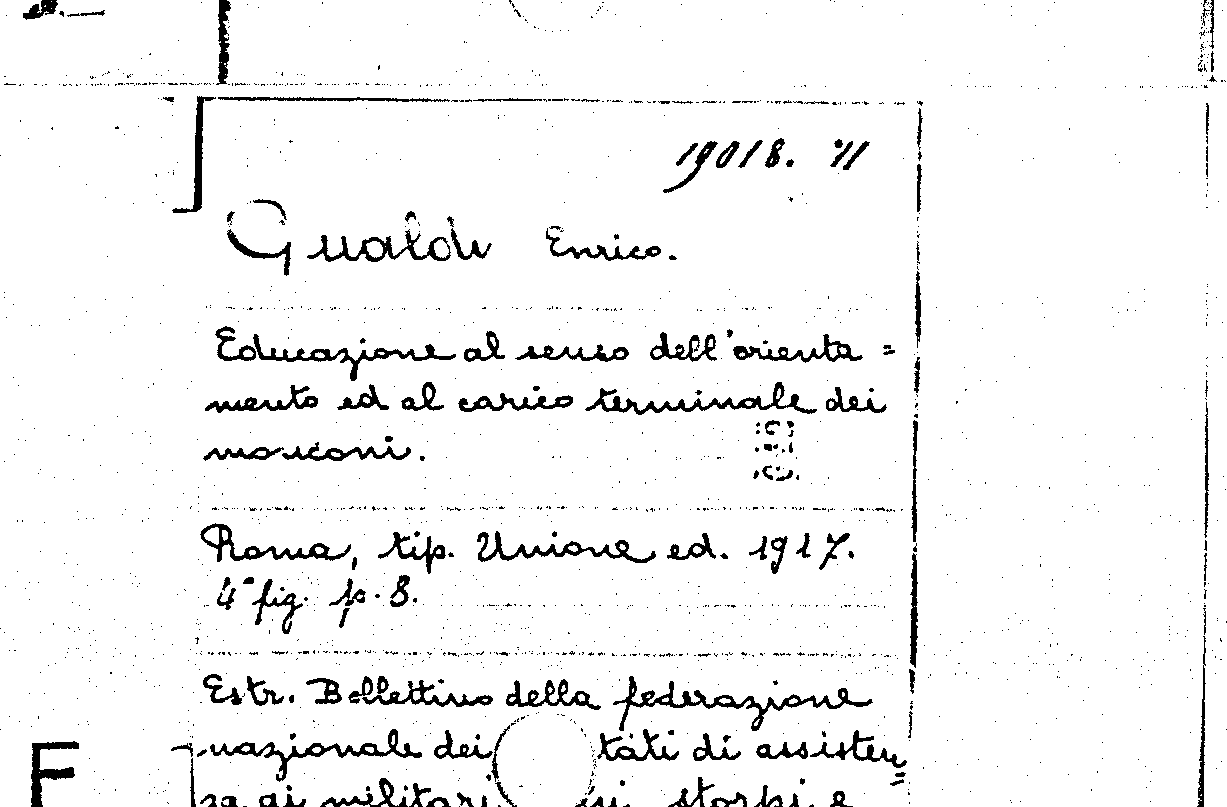 19018. 41
Gualdi Enrico.
Educazione al senso dell'orienta=
mento ed al carico terminale dei
monconi.
Roma, tip. Unione ed. 1917.
4° fig. p. 8.
Estr. Bollettino della federazione
nazionale dei tati di assisten=
za ai militari storpi e